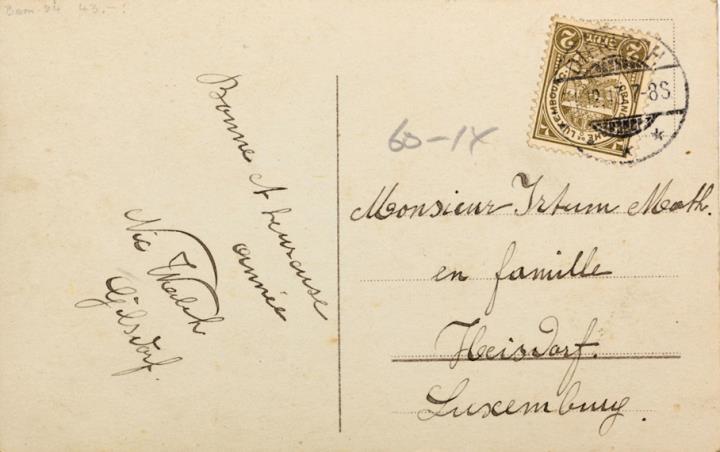 43.-
Bonne et heureuse
année
Nic Walch
Gilsdorf.
60-IX
2 2
LUXEMBOURG
7-8S
Monsieur Irtum Math.
en famille
Heisdorf.
Luxemburg.